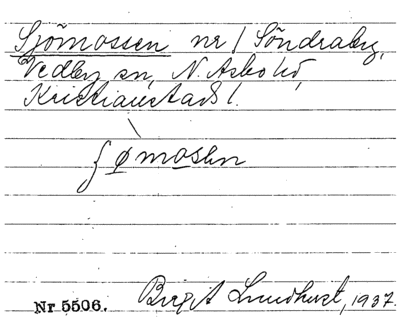 Sjömossen nr 1 Söndraby,
Vedby sn, N. Åsbo hd,
Kristianstads l.
ʃømosen
Nr 5506. Birgit Lundqvist, 1937.